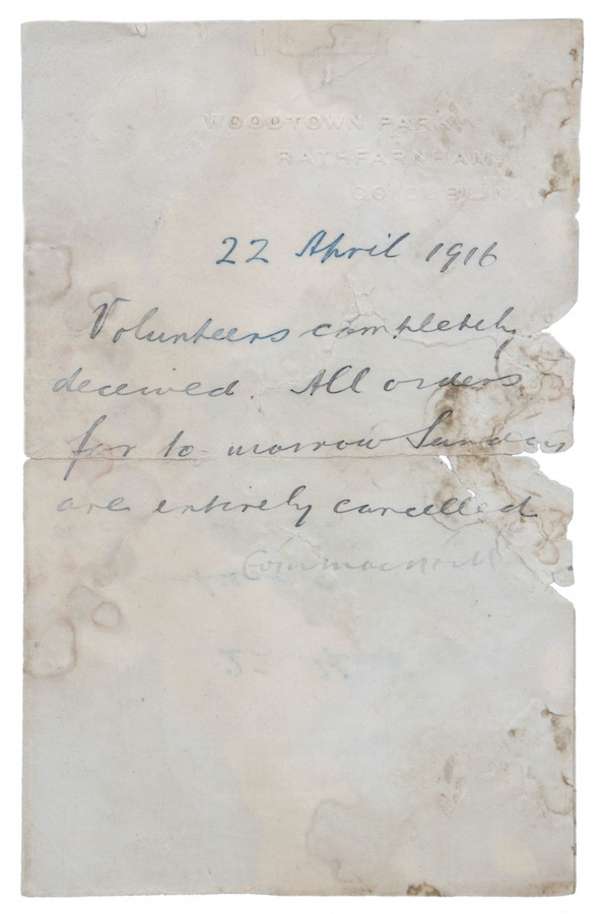 WOODTOWN PARK
RATHFARNHAM
CO. DUBLIN
22 April 1916
Volunteers completely
deceived. All orders
for to-morrow Sunday
are entirely cancelled
Eoin MacNeill